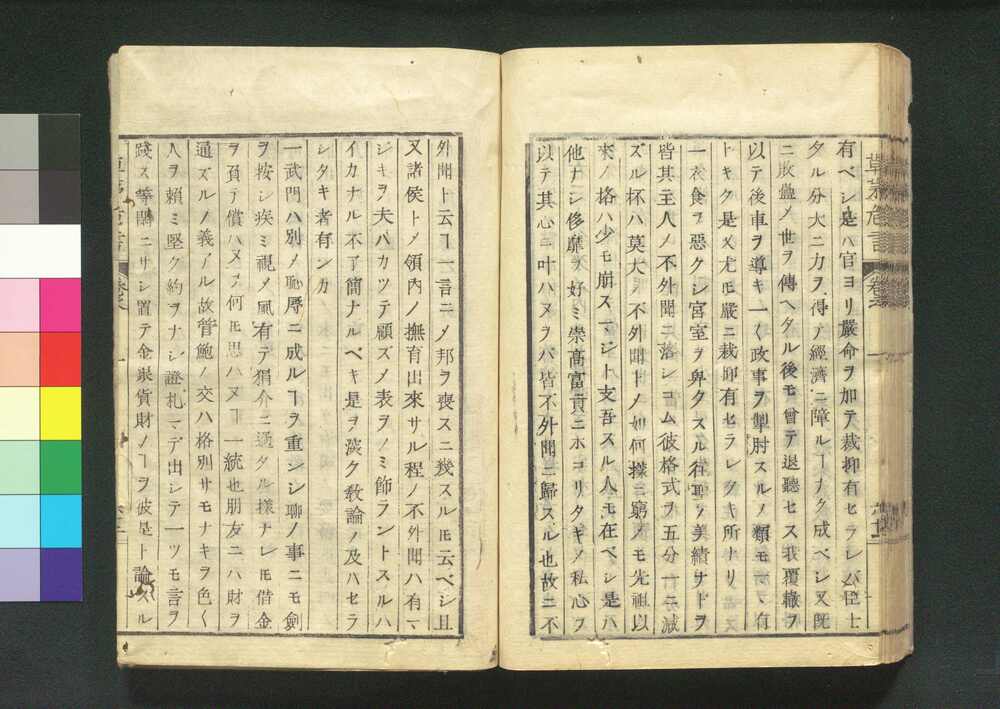 有ベシ是ハ官ヨリ嚴命ヲ加テ裁抑有セラレバ臣士
タル分大ニ力ヲ得テ經濟ニ障ルヿナク成ベシ又既
ニ敗蠱〆世ヲ傳ヘタル後モ曾テ退聽セス我覆轍ヲ
以テ後車ヲ導キ一〱政事ヲ掣肘スルノ類モ有
トキク是又尤モ嚴ニ裁抑有セラレタキ所ナリ
一衣食ヲ惡クシ宮室ヲ卑クスル行ノ美績ナドヲ
皆其主人ノ不外聞ニ落シコム彼格式ヲ五分一ニ減
ズル杯ハ莫大ノ不外聞ト〆如何樣ニ窮〆モ先祖以
來ノ格ハ少モ崩スマジト支吾スル人モ在ベシ是ハ
他ナシ侈靡ヲ好ミ崇高富貴ニホコリタキノ私心ヲ
以テ其心ニ叶ハヌヲバ皆不外聞ニ歸スル也故ニ不
外聞ト云ヿ一言ニ〆邦ヲ喪スニ幾スルモ云ベシ且
又諸侯ト〆領內ノ撫育出來サル程ノ不外聞ハ有マ
ジキヲ夫ハカツテ顧ズ〆表ヲノミ飾ラントスルハ
イカナル不了簡ナルベキ是ヲ深ク敎諭ノ及ハセラ
レタキ者有ンカ
一武門ハ別〆恥辱ニ成ルヿヲ重シシ聊ノ事ニモ劍
ヲ按シ疾ミ視〆風有テ狷介ニ過タル樣ナレ𪜈借金
ヲ負テ償ハヌヲ何𪜈思ハヌヿ一統也朋友ニハ財ヲ
通ズルノ義アル故管鮑ノ交ハ格別サモナキヲ色〱
人ヲ賴ミ堅ク約ヲナシ證札マデ出シテ一ツモ言ヲ
踐ス等閑ニサシ置テ金銀貨財ノヿヲ彼是ト論スル
草茅危言